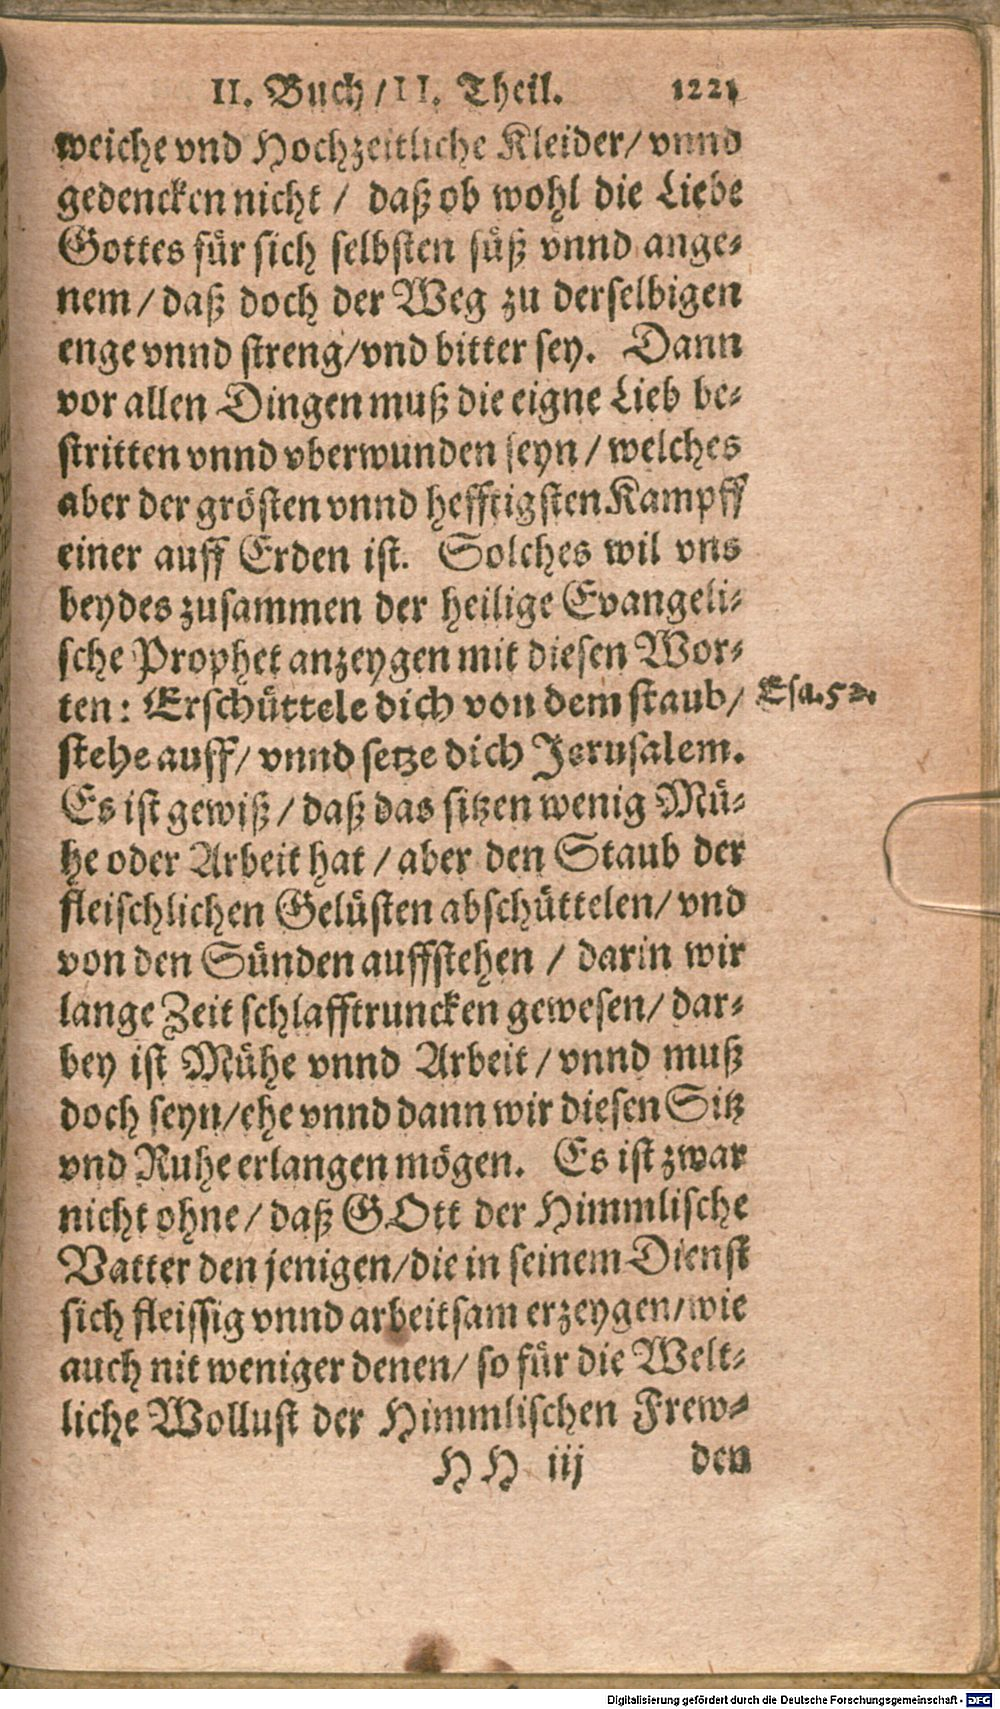 II. Buch / II. Theil. 1221
weiche vnd Hochzeitliche Kleider / vnnd
gedencken nicht / daß ob wohl die Liebe
Gottes für sich selbsten süß vnnd ange-
nem / daß doch der Weg zu derselbigen
enge vnnd streng / vnd bitter sey. Dann
vor allen Dingen muß die eigne Lieb be-
stritten vnnd vberwunden seyn / welches
aber der grösten vnnd hefftigsten Kampff
einer auff Erden ist. Solches wil vns
beydes zusammen der heilige Evangeli-
sche Prophet anzeygen mit diesen Wor-
ten : Erschüttele dich von dem staub /
Esa. 52.
stehe auff / vnnd setze dich Jerusalem.
Es ist gewiß / daß das sitzen wenig Mü-
he oder Arbeit hat / aber den Staub der
fleischlichen Gelüsten abschüttelen / vnd
von den Sünden auffstehen / darin wir
lange Zeit schlafftruncken gewesen / dar-
bey ist Mühe vnnd Arbeit / vnnd muß
doch seyn / ehe vnnd dann wir diesen Sitz
vnd Ruhe erlangen mögen. Es ist zwar
nicht ohne / daß GOtt der Himmlische
Vatter den jenigen / die in seinem Dienst
sich fleissig vnnd arbeitsam erzeygen / wie
auch nit weniger denen / so für die Welt-
liche Wollust der Himmlischen Frew-
HH iij den
Digitalisierung gefördert durch die Deutsche Forschungsgemeinschaft - DFG